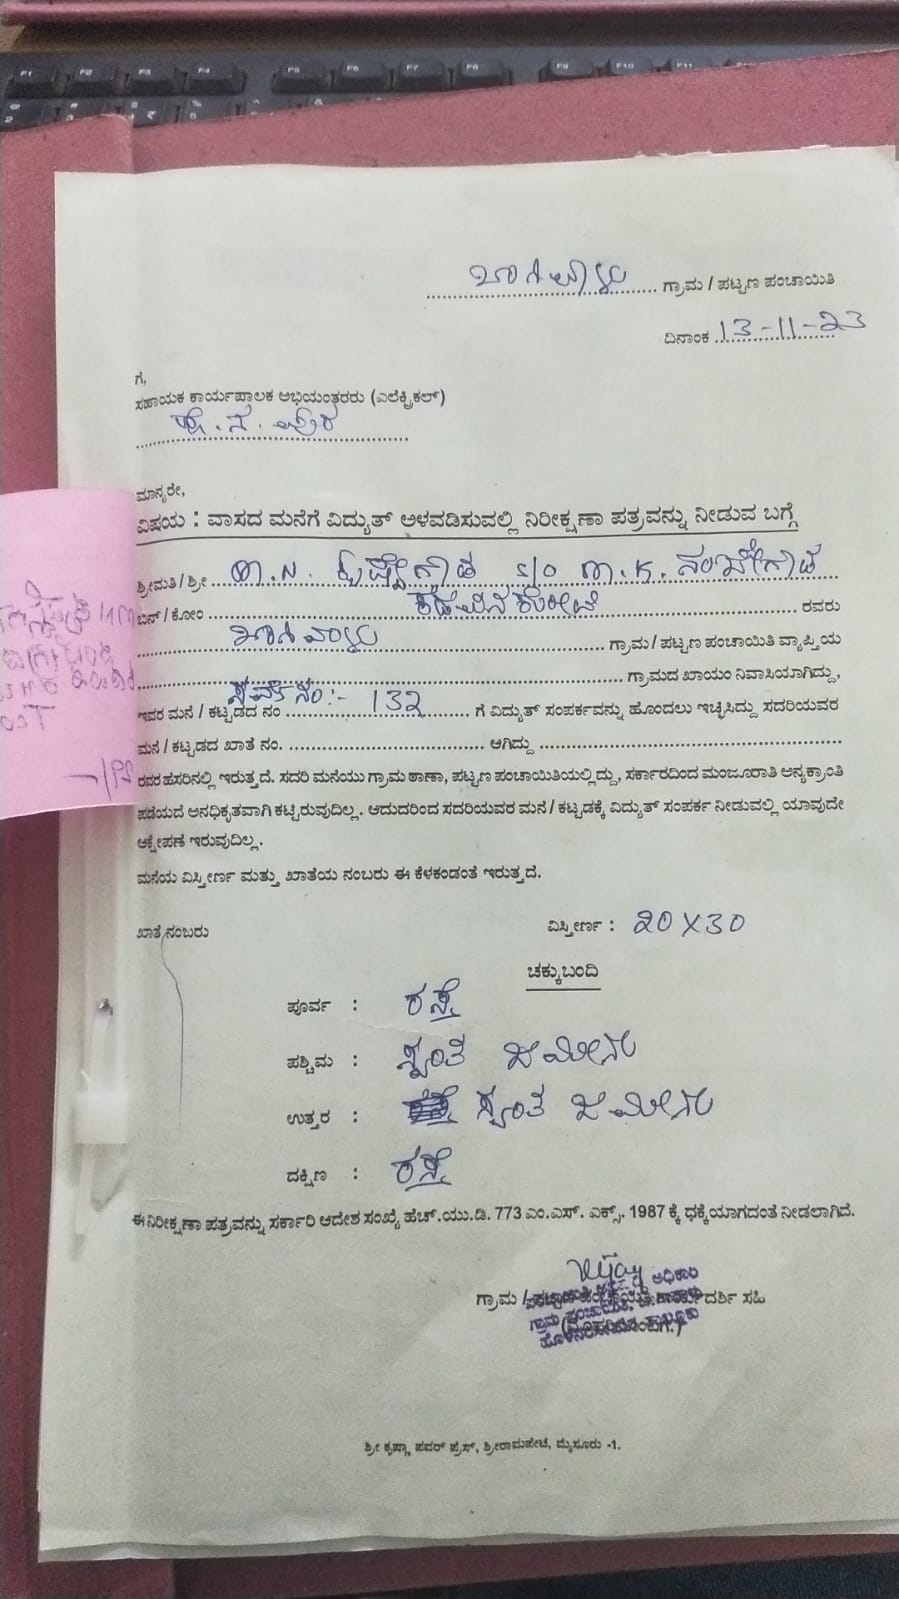 ಬಾಗಿವಾಳು ಗ್ರಾಮ / ಪಟ್ಟಣ ಪಂಚಾಯಿತಿ
ದಿನಾಂಕ 13-11-23
ಗೆ,
ಸಹಾಯಕ ಕಾರ್ಯಪಾಲಕ ಅಭಿಯಂತರರು (ಎಲೆಕ್ಟ್ರಿಕಲ್)
ಹೊ. ನ. ಪುರ
ಮಾನ್ಯರೇ,
ವಿಷಯ : ವಾಸದ ಮನೆಗೆ ವಿದ್ಯುತ್ ಅಳವಡಿಸುವಲ್ಲಿ ನಿರೀಕ್ಷಣಾ ಪತ್ರವನ್ನು ನೀಡುವ ಬಗ್ಗೆ
ಶ್ರೀಮತಿ / ಶ್ರೀ N. ಕೃಷ್ಣೇಗೌಡ S/O K. ನಂಜೇಗೌಡ
ಬಿನ್ / ಕೋಂ ರವರು
ಬಾಗಿವಾಳು ಗ್ರಾಮ / ಪಟ್ಟಣ ಪಂಚಾಯಿತಿ ವ್ಯಾಪ್ತಿಯ
ಗ್ರಾಮದ ಖಾಯಂ ನಿವಾಸಿಯಾಗಿದ್ದು,
ಇವರ ಮನೆ / ಕಟ್ಟಡದ ನಂ ನಂ:- 132 ಗೆ ವಿದ್ಯುತ್ ಸಂಪರ್ಕವನ್ನು ಹೊಂದಲು ಇಚ್ಛಿಸಿದ್ದು ಸದರಿಯವರ
ಮನೆ / ಕಟ್ಟಡದ ಖಾತೆ ನಂ. ಆಗಿದ್ದು
ರವರ ಹಸರಿನಲ್ಲಿ ಇರುತ್ತದೆ. ಸದರಿ ಮನೆಯು ಗ್ರಾಮ ಠಾಣಾ, ಪಟ್ಟಣ ಪಂಚಾಯಿತಿಯಲ್ಲಿದ್ದು, ಸರ್ಕಾರದಿಂದ ಮಂಜೂರಾತಿ ಅನ್ಯಕ್ರಾಂತಿ
ಪಡೆಯದೆ ಅನಧಿಕೃತವಾಗಿ ಕಟ್ಟಿರುವುದಿಲ್ಲ. ಆದುದರಿಂದ ಸದರಿಯವರ ಮನೆ / ಕಟ್ಟಡಕ್ಕೆ ವಿದ್ಯುತ್ ಸಂಪರ್ಕ ನೀಡುವಲ್ಲಿ ಯಾವುದೇ
ಆಕ್ಷೇಪಣೆ ಇರುವುದಿಲ್ಲ.
ಮನೆಯ ವಿಸ್ತೀರ್ಣ ಮತ್ತು ಖಾತೆಯ ನಂಬರು ಈ ಕೆಳಕಂಡಂತೆ ಇರುತ್ತದೆ.
ಖಾತೆ ನಂಬರು ವಿಸ್ತೀರ್ಣ : 20X30
ಚಕ್ಕುಬಂದಿ
ಪೂರ್ವ : ರಸ್ತೆ
ಪಶ್ಚಿಮ : ಸ್ವಂತ ಜಮೀನು
ಉತ್ತರ : ಸ್ವಂತ ಜಮೀನು
ದಕ್ಷಿಣ : ರಸ್ತೆ
ಈ ನಿರೀಕ್ಷಣಾ ಪತ್ರವನ್ನು ಸರ್ಕಾರಿ ಆದೇಶ ಸಂಖ್ಯೆ ಹೆಚ್.ಯು.ಡಿ. 773 ಎಂ.ಎಸ್. ಎಕ್ಸ್. 1987 ಕ್ಕೆ ಧಕ್ಕೆಯಾಗದಂತೆ ನೀಡಲಾಗಿದೆ.
ಗ್ರಾಮ / ಪಟ್ಟಣ ಪಂಚಾಯಿತಿ ಕಾರ್ಯದರ್ಶಿ ಸಹಿ
ಶ್ರೀ ಕೃಷ್ಣಾ ಪವರ್ ಪ್ರೆಸ್, ಶ್ರೀರಾಮಪೇಟೆ, ಮೈಸೂರು -1.